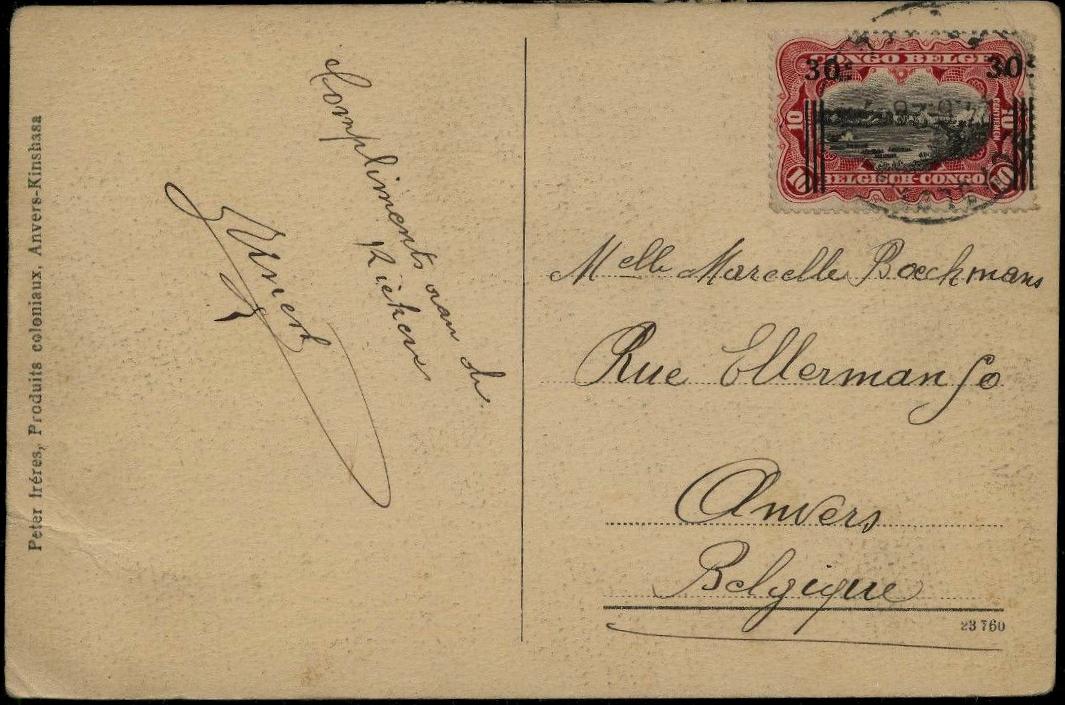 Peter frères, Produits coloniaux, Anvers-Kinshasa
Compliments van de
Riekens
Ernest
CONGO BELGE
30 30
10 10
CENTIEMEN
10 10
BELGISCH-CONGO
Melle Marcelle Boeckmans
Rue Ellerman 50
Anvers
Belgique
23760